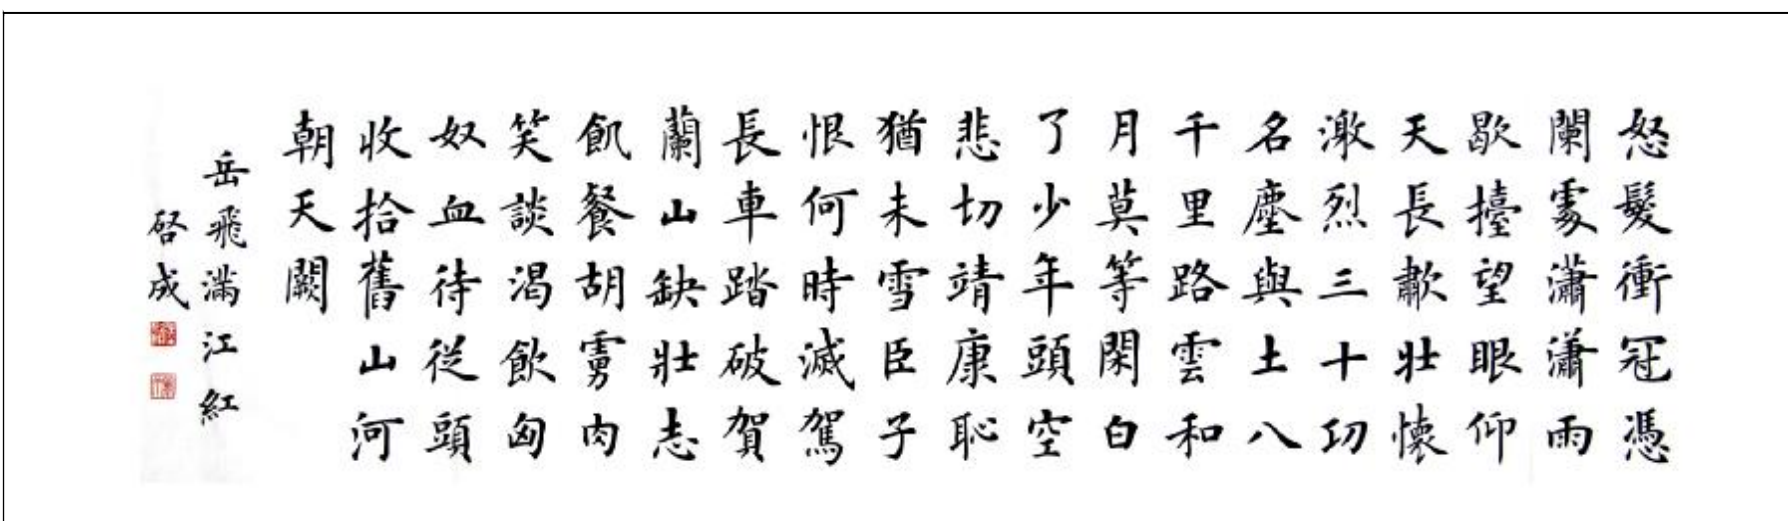 怒髮衝冠憑
闌處瀟瀟雨
歇擡望眼仰
天長歗壯懷
激烈三十功
名塵與土八
千里路雲和
月莫等閑白
了少年頭空
悲切靖康恥
猶未雪臣子
恨何時滅駕
長車踏破賀
蘭山缺壯志
飢餐胡虜肉
笑談渴飲匈
奴血待從頭
收拾舊山河
朝天闕
岳飛滿江紅
啓成